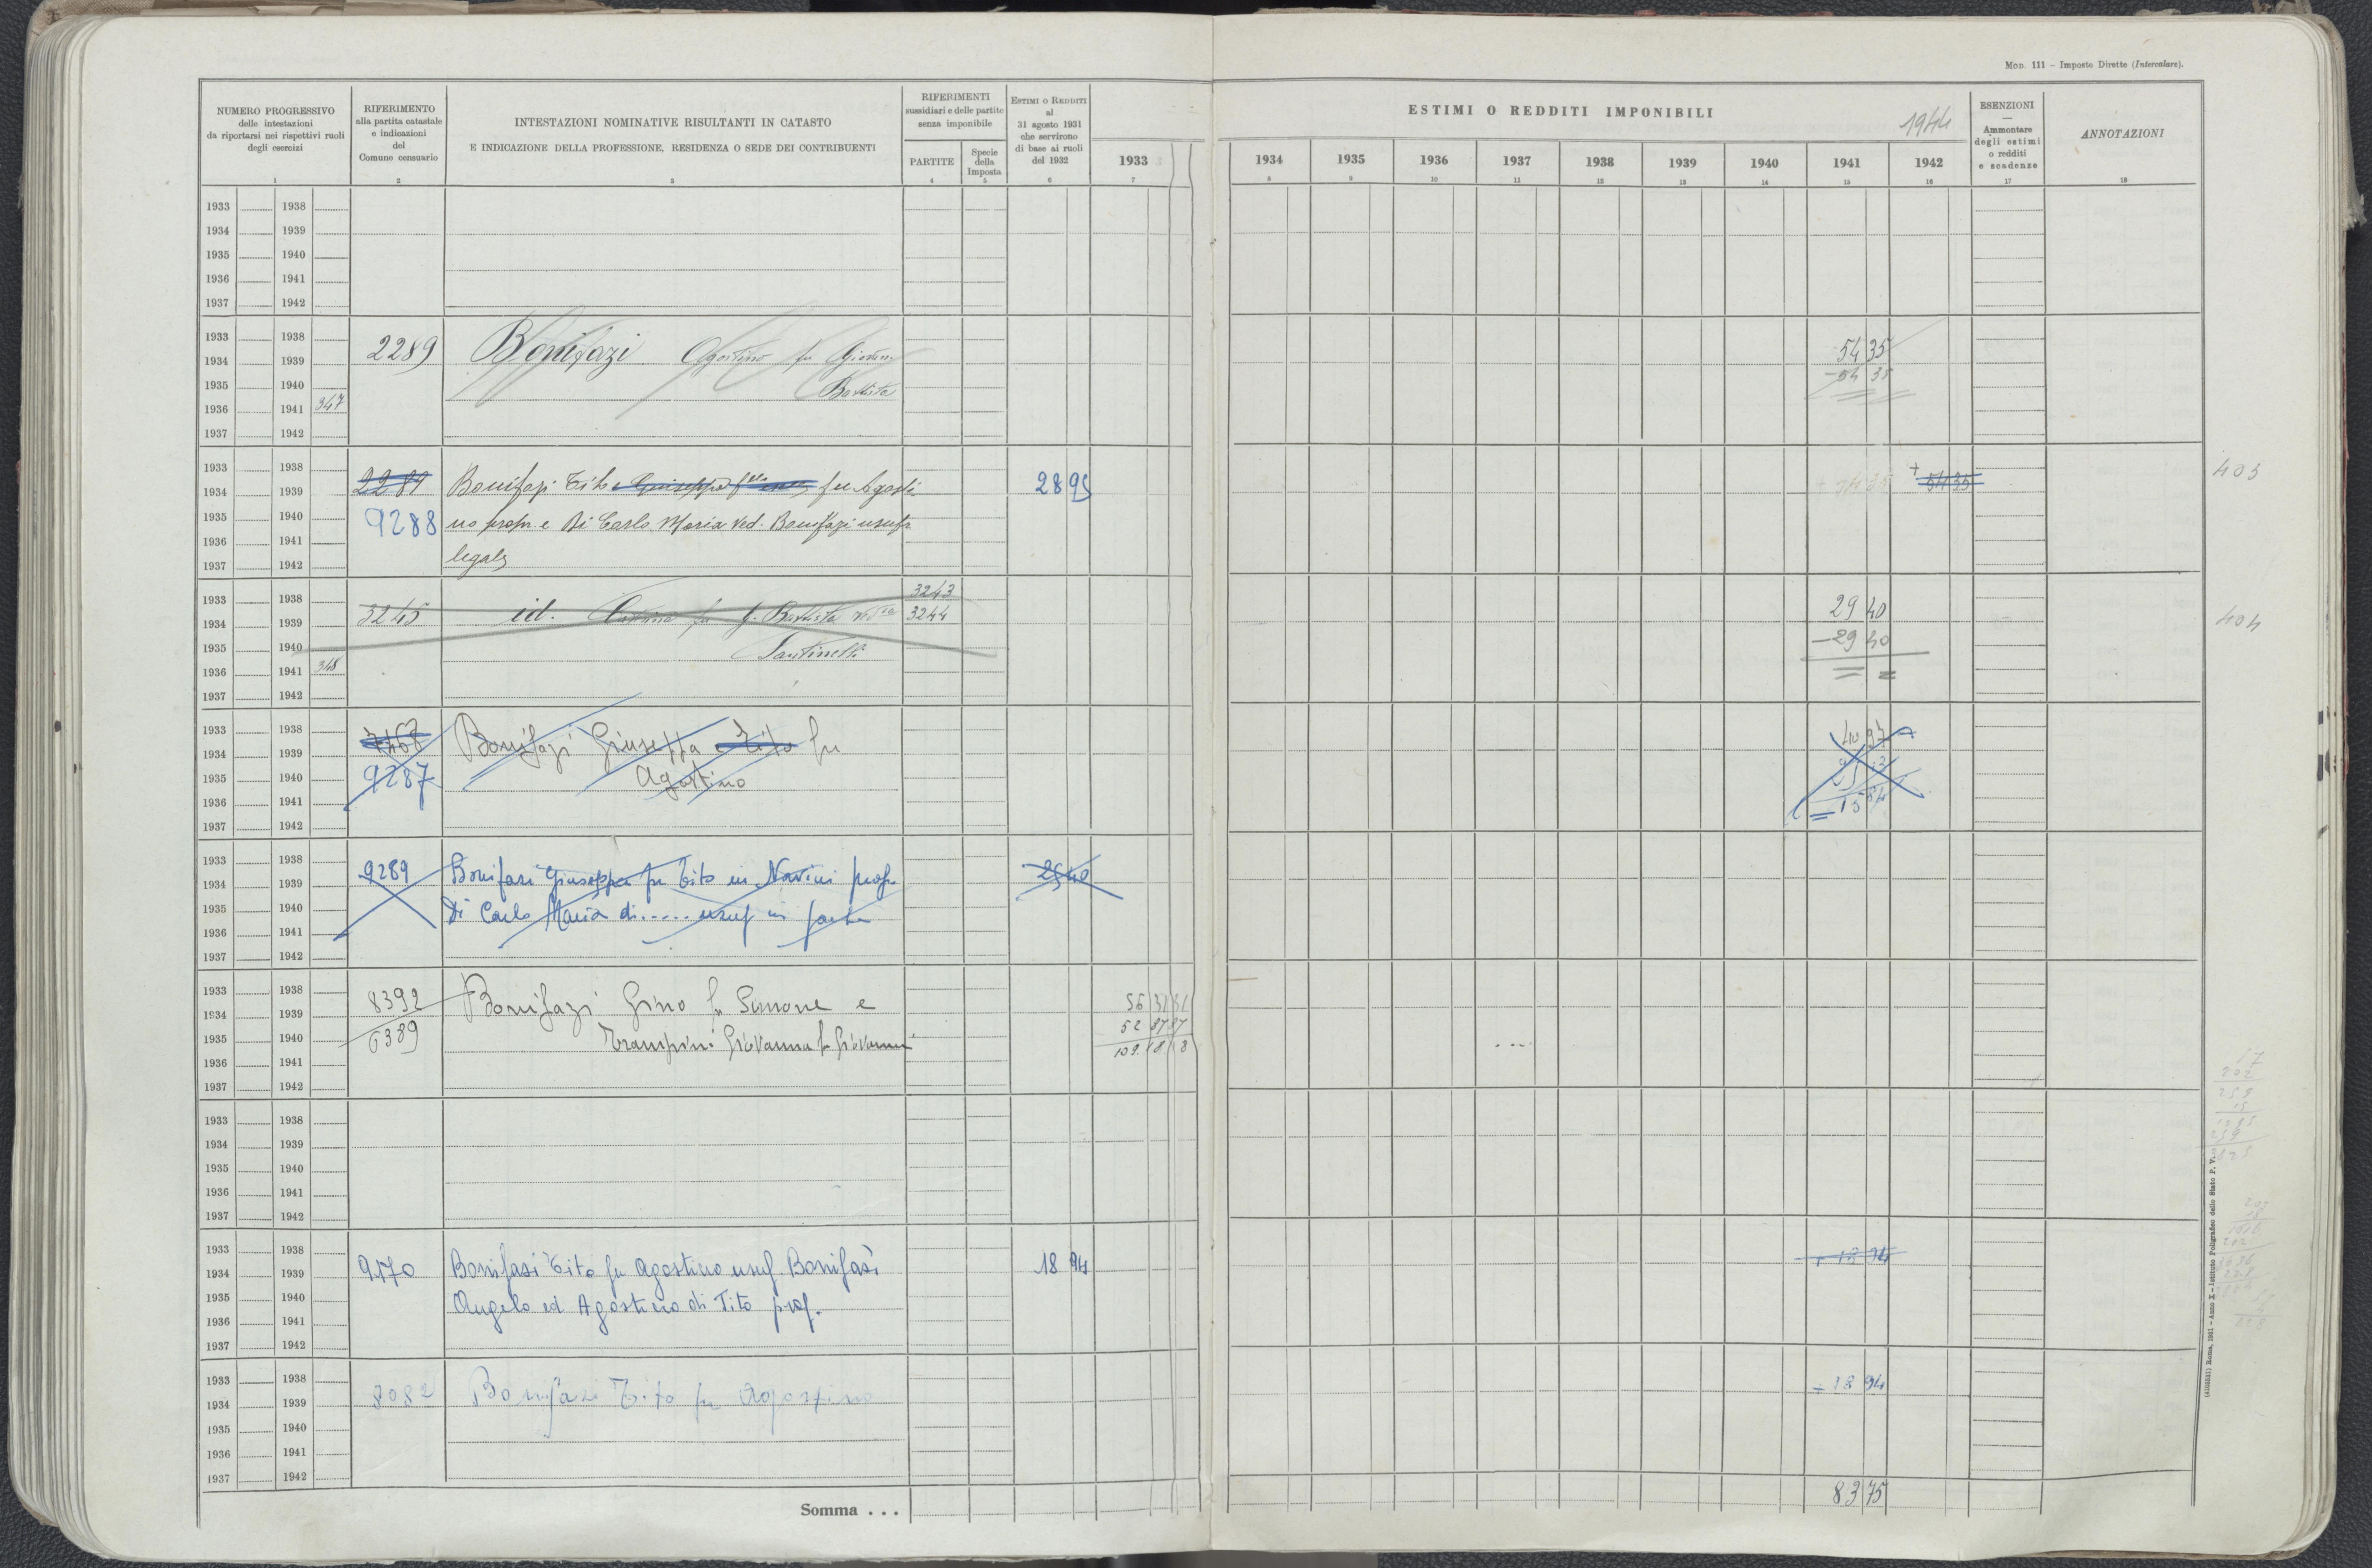 Mod. 111 – Imposte Dirette (Intercalare).
NUMERO PROGRESSIVO
delle intestazioni
da riportarsi nei rispettivi ruoli
degli esercizi
1
RIFERIMENTO
alla partita catastale
e indicazioni
del
Comune censuario
2
INTESTAZIONI NOMINATIVE RISULTANTI IN CATASTO
E INDICAZIONE DELLA PROFESSIONE, RESIDENZA O SEDE DEI CONTRIBUENTI
3
RIFERIMENTI
sussidiari e delle partite
senza imponibile
PARTITE
4
Specie
della
Imposta
5
ESTIMI O REDDITI
al
31 agosto 1931
che servirono
di base ai ruoli
del 1932
6
1933
7
ESTIMI O REDDITI IMPONIBILI
1944
1934 1935 1936 1937 1938 1939 1940 1941 1942
8 9 10 11 12 13 14 15 16
ESENZIONI
—
Ammontare
degli estimi
o redditi
e scadenze
17
ANNOTAZIONI
18
1933 1938
1934 1939
1935 1940
1936 1941
1937 1942
1933 1938
1934 1939 2289 Bonifazi Agostino fu Giovan 54 35
1935 1940 Battista – 54 35
1936 1941 347
1937 1942
1933 1938
1934 1939 2289 Bonifazi Tito Giuseppa fu Agosti 28 95 + 54 35 403
1935 1940 9288 no propr. e Di Carlo Maria ved. Bonifazi usufr
1936 1941
1937 1942 legale
1933 1938 3243
1934 1939 3245 id. fu G. Battista 3244 29 40 404
1935 1940 Santinelli – 29 40
1936 1941 348
1937 1942
1933 1938
1934 1939 7468 Bonifazi Giuseppa e Tito fu
1935 1940 9287 Agostino
1936 1941
1937 1942
1933 1938
1934 1939 9289 Bonifasi Giuseppa fu Tito in Navini prop.
1935 1940 Di Carlo Maria di ..... usuf in parte
1936 1941
1937 1942
1933 1938
1934 1939 8392 Bonifazi Gino fu Simone e
1935 1940 6389 Giovanna fu Giovanni
1936 1941
1937 1942
1933 1938
1934 1939
1935 1940
1936 1941
1937 1942
1933 1938
1934 1939 9570 Bonifasi Tito fu Agostino usuf. Bonifasi 18 94 + 18 94
1935 1940 Angelo ed Agostino di Tito prop.
1936 1941
1937 1942
1933 1938
1934 1939 8082 Bonifazi Tito fu Agostino + 18 94
1935 1940
1936 1941
1937 1942
Somma . . . 83 75
Roma, 1931 – Anno X – Istituto Poligrafico dello Stato P. V.